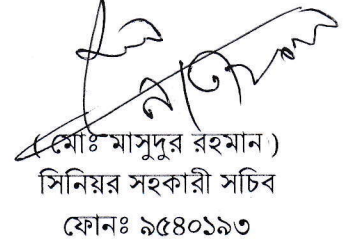 ( মোঃ মাসুদুর রহমান )
সিনিয়র সহকারী সচিব
ফোনঃ ৯৫৪০১৯৩